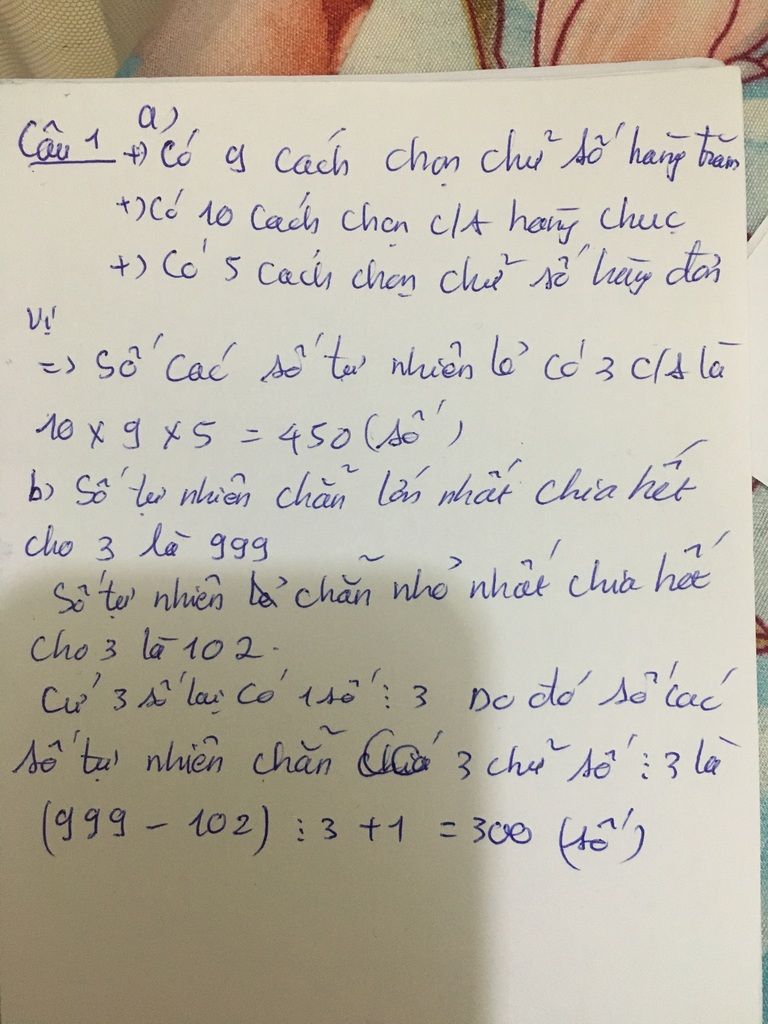 a)
Câu 1 +) Có 9 cách chọn chữ số hàng trăm
+) Có 10 cách chọn c/s hàng chục
+) Có 5 cách chọn chữ số hàng đơn
vị
=> Số các số tự nhiên lẻ có 3 c/s là
10 x 9 x 5 = 450 (số)
b) Số tự nhiên chẵn lớn nhất chia hết
cho 3 là 999
Số tự nhiên chẵn nhỏ nhất chia hết
cho 3 là 102.
Cứ 3 số lại có 1 số ⋮ 3 Do đó số các
số tự nhiên chẵn có 3 chữ số ⋮ 3 là
(999 - 102) ⋮ 3 + 1 = 300 (số)